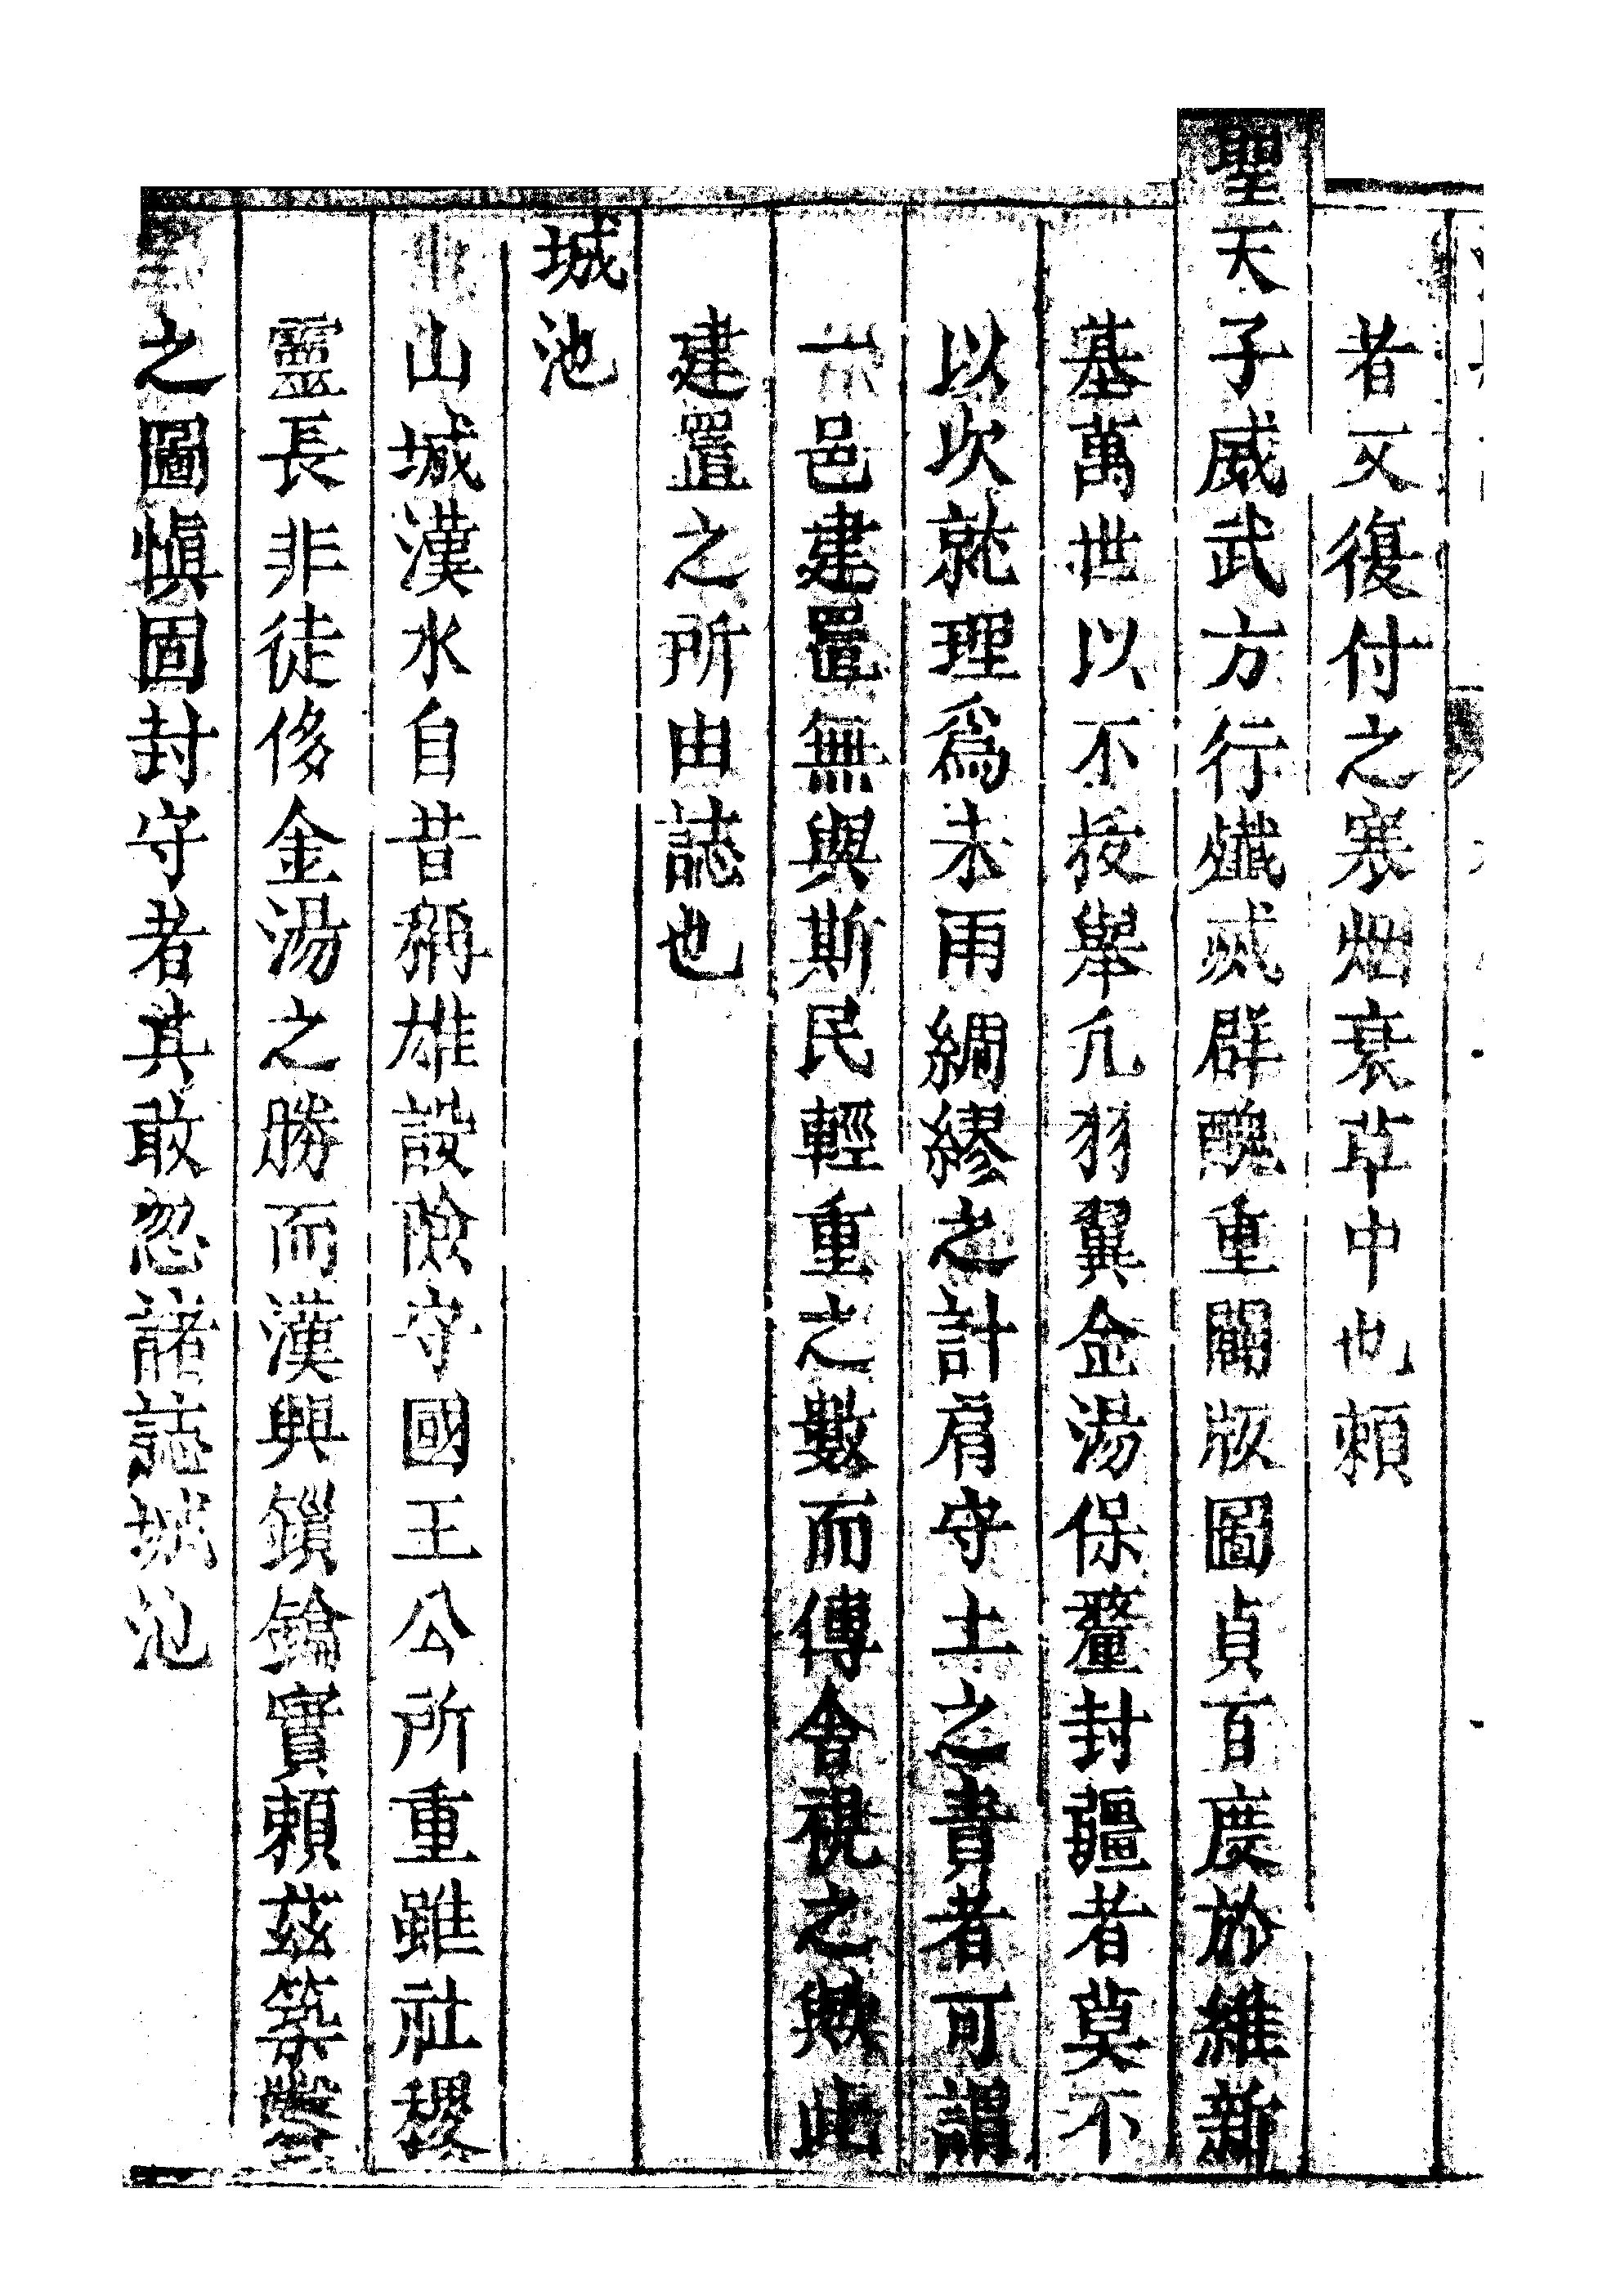 者又復付之寒烟衰草中也賴
聖天子威武方行殲滅群醜重闢版圖貞百度於維新
基萬世以不拔舉凡羽翼金湯保釐封疆者莫不
以次就理為未雨綢繆之計肩守土之責者可謂
邑建置無與斯民輕重之數而傳舍視之歟此
建置之所由誌也
城池
山城漢水自昔稱雄設險守國王公所重雖社稷
靈長非徒侈金湯之勝而漢興鎖鑰實賴茲築鑿
之圖慎固封守者其敢忽諸誌城池